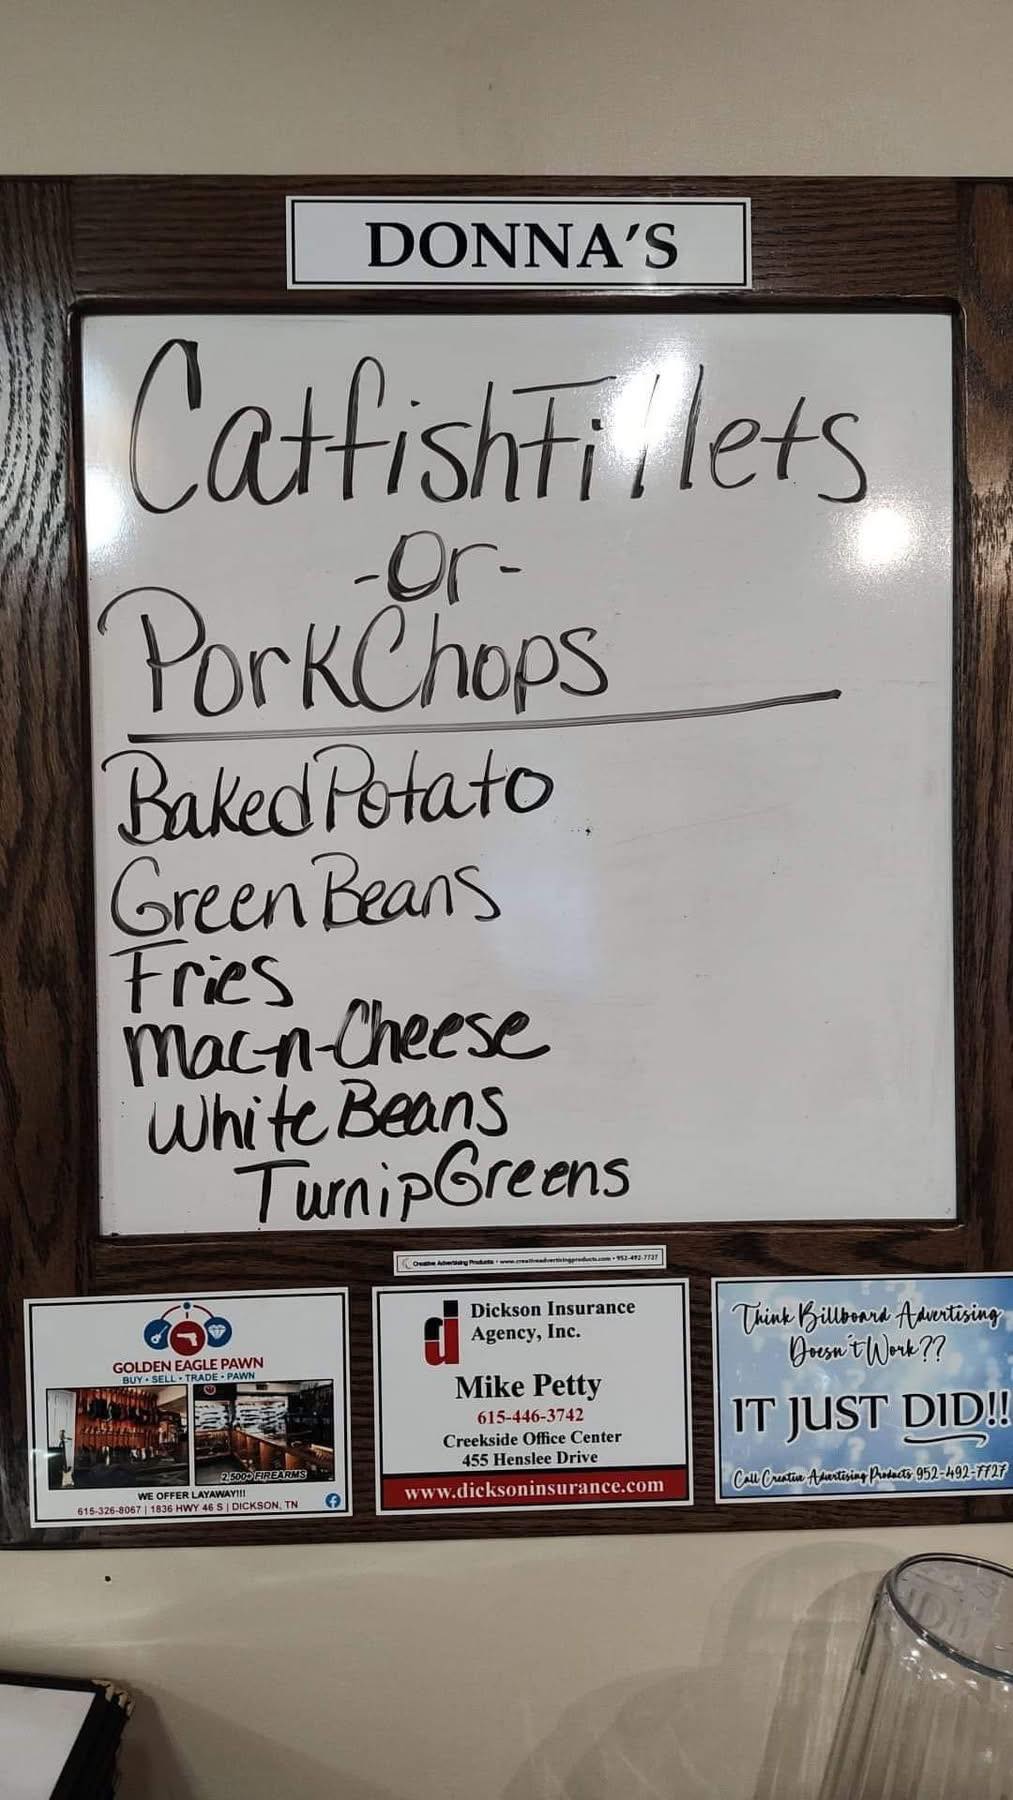 DONNA'S
Catfish Fillets
-Or-
Pork Chops
Baked Potato
Green Beans
Fries
Mac-n-Cheese
White Beans
Turnip Greens
Creative Advertising Products • www.creativeadvertisingproducts.com • 952-492-7727
GOLDEN EAGLE PAWN
BUY • SELL • TRADE • PAWN
2,500+ FIREARMS
WE OFFER LAYAWAY!!!
615-326-8067 | 1836 HWY 46 S | DICKSON, TN
d
Dickson Insurance
Agency, Inc.
Mike Petty
615-446-3742
Creekside Office Center
455 Henslee Drive
www.dicksoninsurance.com
Think Billboard Advertising
Doesn't Work??
IT JUST DID!!
Call Creative Advertising Products 952-492-7727